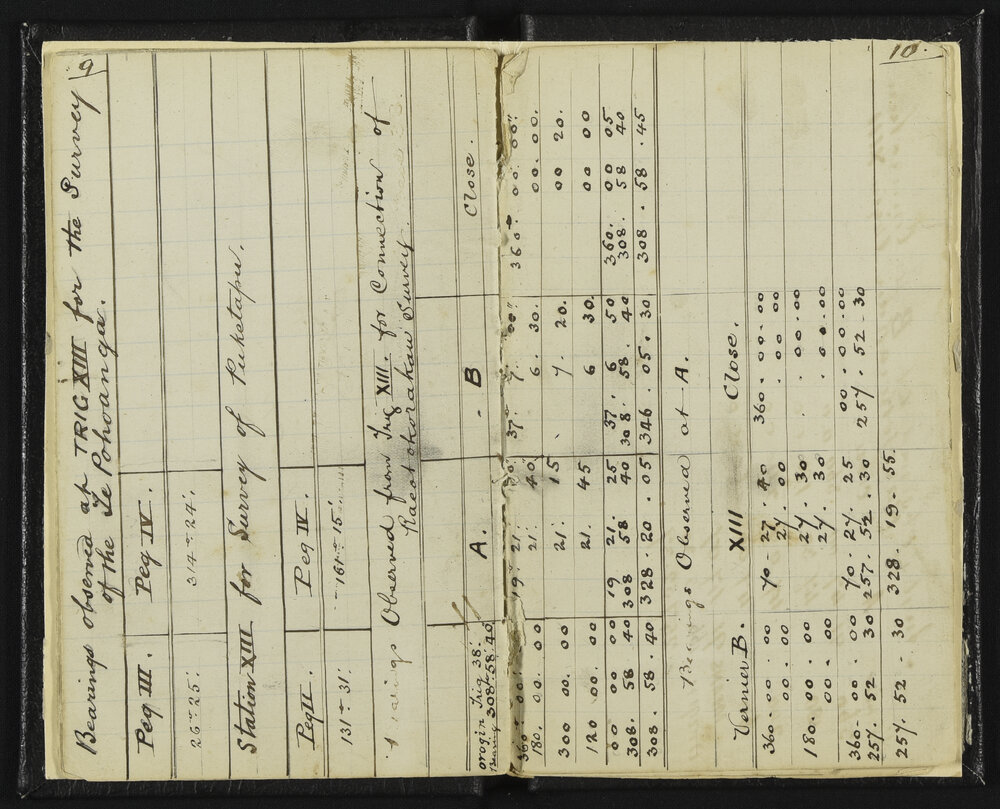 9
Bearings observed at TRIG XIII for the Survey
of the Te Pohoanga.
Peg III. Peg IV.
26° 25'. 314° 24'.
Station XIII for Survey of Puketapu.
Peg II. Peg IV.
131° 31'. 161° 15'
Bearings Observed from Trig XIII. for Connection of
Survey.
orogin Trig 38: A. B Close.
Bearing 308.58.40
360. 00. 00 19. 21. 37 7. 00" 360. 00. 00"
180. 00. 00 21. 40" 6. 30. 00. 00.
300 00. 00 21. 15 7. 20. 00 20.
120 00. 00 21. 45 6 30. 00 00
00 00 00 19 21. 25 37. 6 50 360. 00 05
308. 58 40 308 58 40 308. 58. 40 308. 58 40
308. 58. 40 328. 20. 05 346. 05. 30 308. 58. 45
10.
Bearings Observed at A.
Vernier B. XIII Close.
360. 00. 00 70. 27. 40 360. 00. 00
00. 00 27. 00 00. 00
180. 00. 00 27. 30 00. 00
00. 00 27. 30 00. 00
360. 00. 00 70. 27. 25 00. 00. 00
257. 52 30 257. 52. 30 257. 52. 30
257. 52. 30 328. 19. 55.